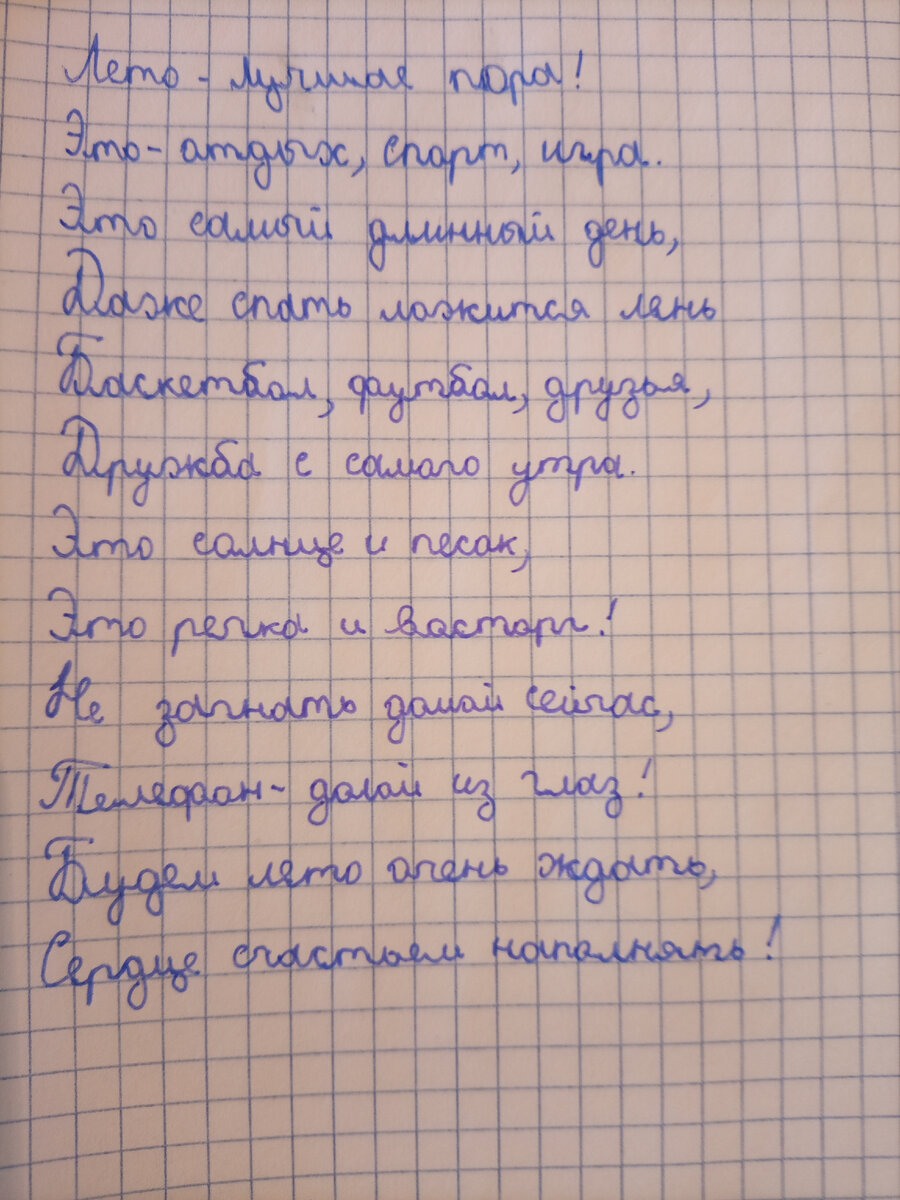 Лето - лучшая пора!
Это - отдых, спорт, игра.
Это самый длинный день,
Даже спать ложится лень
Баскетбол, футбол, друзья,
Дружба с самого утра.
Это солнце и песок,
Это речка и восторг!
Не загнать домой сейчас,
Телефон - долой из глаз!
Будем лето очень ждать,
Сердце счастьем наполнять!